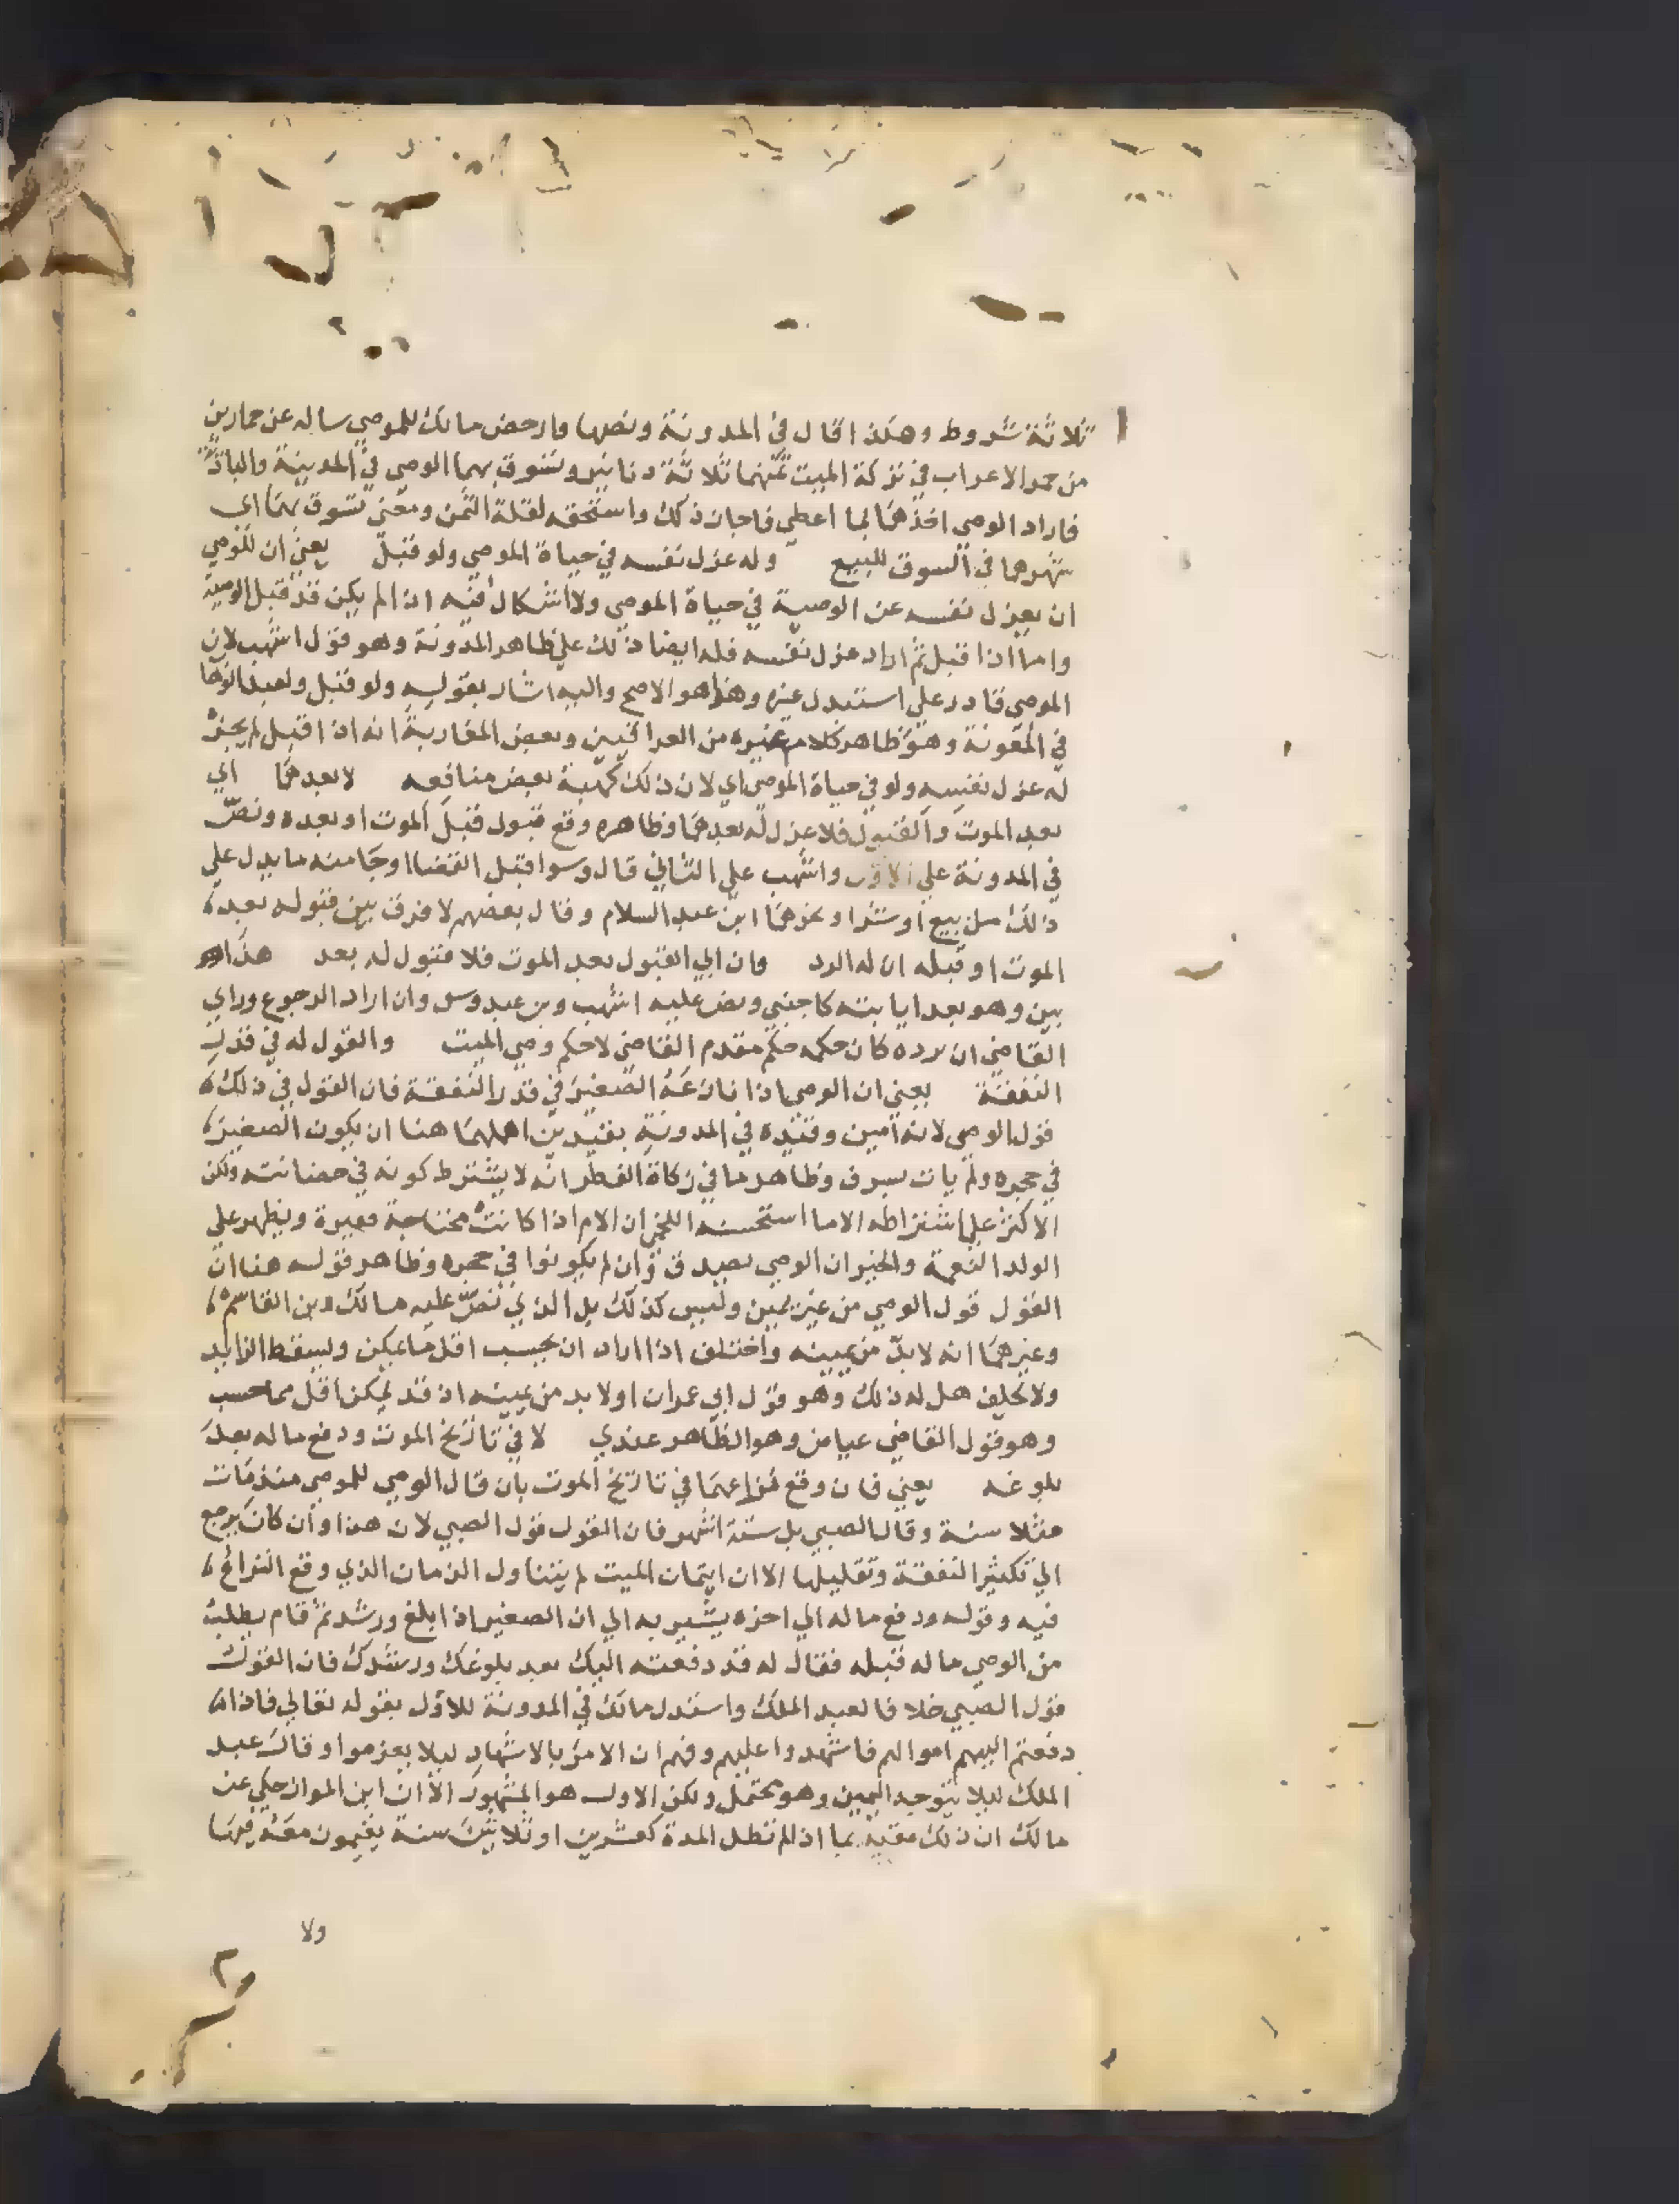 ثلاثة شروط وهكذا قال في المدونة ونصها وارخص مالك للموصي ساله عن حمارين
من حمر الاعراب في تركة الميت ثمنهما ثلاثة دنانير وتسوق بهما الوصي في المدينة والبادية
فاراد الوصي اخذهما بما اعطي فاجاز ذلك واستخفه لقلة الثمن ومعني تسوق بهما اي
شهرهما في السوق للبيع وله عزل نفسه في حياة الموصي ولو قبل يعني ان للوصي
ان يعزل نفسه عن الوصية في حياة الموصي ولا اشكال فيه اذا لم يكن قد قبل الوصية
واما اذا قبل ثم اراد عزل نفسه فله ايضا ذلك علي ظاهر المدونة وهو قول اشهب لان
الموصي قادر علي استبدل غيره وهذا هو الاصح واليه اشار بقوله ولو قبل ولعبد الوهاب
في المعونة وهو ظاهر كلام غيره من العراقيين وبعض المغاربة انه اذا قبل لم يجز
له عزل نفسه ولو في حياة الموصي اي لان ذلك كهبة بعض منافعه لا بعدهما اي
بعد الموت والقبول فلا عزل له بعدهما وظاهره وقع قبول قبل الموت او بعده ونص
في المدونة علي الاول واشهب علي الثاني قال وسوا قبل القضا او جا منه ما يدل علي
ذلك من بيع او شرا ونحوهما ابن عبد السلام وقال بعضهم لا فرق بين قبوله بعد
الموت او قبله ان له الرد وان ابي القبول بعد الموت فلا قبول له بعد هذا
بين وهو بعد ايابته كاجنبي ونص عليه اشهب وبن عبدوس وان اراد الرجوع وراي
القاضي ان يرده كان حكمه حكم مقدم القاضي لا حكم وصي الميت والقول له في قدر
النفقة يعني ان الوصي اذا نازعه الصغير في قدر النفقة فان القول في ذلك
قول الوصي لانه امين وقيده في المدونة بقيدين اهملهما هنا ان يكون الصغير
في حجره ولم يات بسرف وظاهر ما في زكاة الفطر انه لا يشترط كونه في حضانته ولكن
الاكثر علي اشتراطه الا ما استحسنه اللخمي ان الام اذا كانت محتاجة فقيرة ويظهر علي
الولد النعمة والخير ان الوصي يصدق وان لم يكونوا في حجره وظاهر قوله هنا ان
القول قول الوصي من غير يمين وليس كذلك بل الذي نص عليه مالك وبن القاسم
وغيرهما انه لا بد من يمينه واختلف اذا اراد ان يحسب اقل ما يمكن ويسقط الزايد
ولا يحلف هل له ذلك وهو قول ابي عمران اولا بد من يمينه اذ قد يمكن اقل مما حسب
وهو قول القاضي عياض وهو الظاهر عندي لا في تاريخ الموت ودفع ماله بعد
بلوغه يعني فان وقع نزاعهما في تاريخ الموت بان قال الوصي للموصي منذ مات
مثلا سنة وقال الصبي بل ستة اشهر فان القول قول الصبي لان هذا وان كان يرجع
الي تكثير النفقة وتقليلها الا ان ايتمان الميت لم يتناول الزمان الذي وقع النزاع
فيه وقوله ودفع ماله الي اخره يشير به الي ان الصغير اذا بلغ ورشد ثم قام يطلب
من الوصي ماله قبله فقال له قد دفعته اليك بعد بلوغك ورشدك فان القول
قول الصبي خلافا لعبد الملك واستدل مالك في المدونة للاول بقوله تعالي فاذا
دفعتم اليهم اموالهم فاشهدوا عليهم وفهم ان الامر بالاشهاد ليلا يغرموا وقال عبد
الملك ليلا يتوجه اليمين وهو محتمل ولكن الاول هو المشهور الا ان ابن المواز حكي عن
مالك ان ذلك مقيد بما اذا لم تطل المدة كعشرين او ثلاثين سنة يقيمون معه فيها
ولا